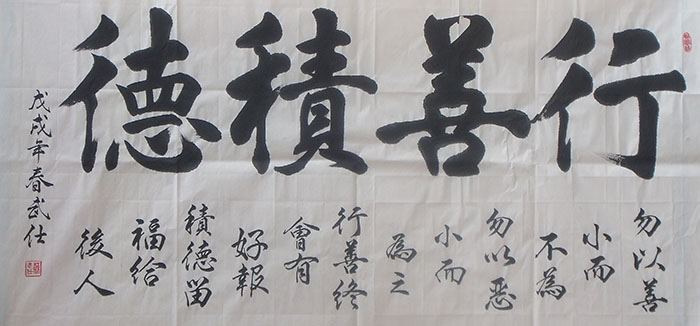 行善積德
勿以善
小而
不為
勿以惡
小而
為之
行善終
會有
好報
積德留
福給
後人
戊戌年春武仕